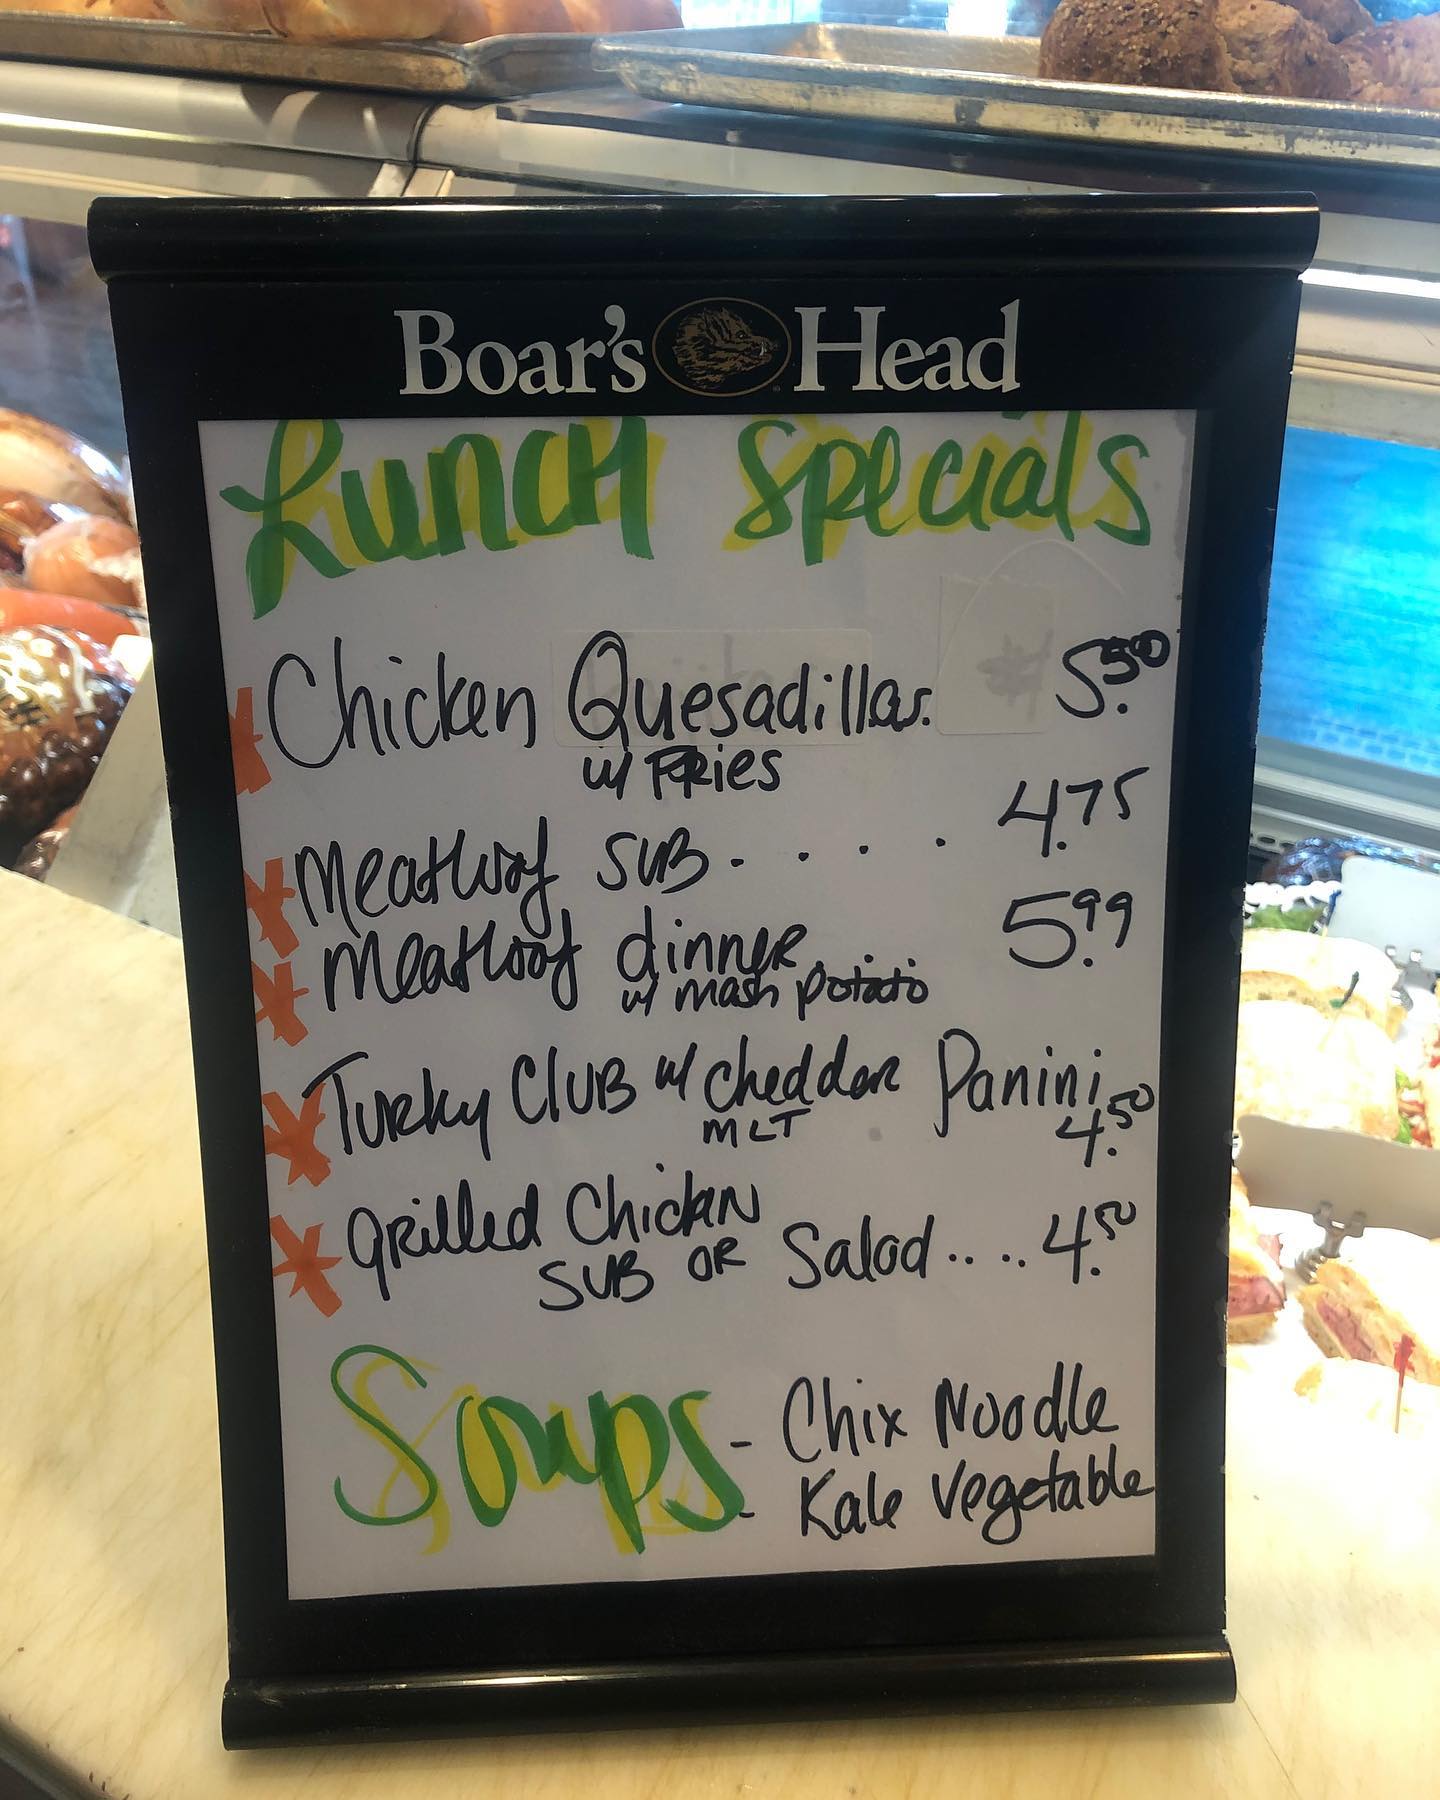 Boar's Head
Lunch Specials
Chicken Quesadillas. 5.50
w/ FRies
Meatloof SUB. . . . . 4.75
Meatloof dinneR.... 5.99
w/ mash potato
Turky CluB w/ cheddaR Panini
MLT 4.50
gRilled Chicken
SUB OR Salad.... 4.50
Soups - Chix Noodle
- Kale Vegetable